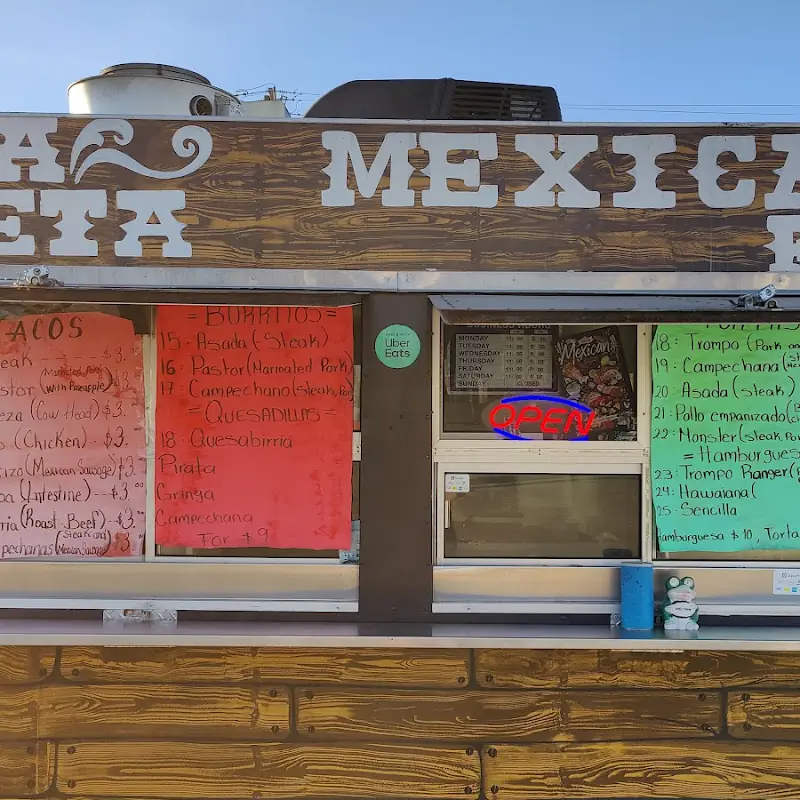 A MEXICA
ETA E
ACOS
eak $3.
Marinated Pork
stor With Pineapple) $3
eza (Cow Head) $3.
(Chicken) - $3.
izo (Mexican Sausage) $3.
pa (Intestine) -- $3.
rria (Roast Beef) -- $3
pechanas (Steak and Mexican Sausage) $3
= BURRITOS =
15 - Asada (Steak)
16 - Pastor (Marinated Pork)
17 - Campechano (Steak, Po
= QUESADILLAS =
18 - Quesabirria
Pirata
Gringa
Campechana
For $9
ORDER WITH
Uber
Eats
BUSINESS HOURS
MONDAY
TUESDAY
WEDNESDAY
THURSDAY
FRIDAY
SATURDAY
SUNDAY CLOSED
Mexican
OPEN
18: Trompo (Pork and
19: Campechana (
20: Asada (steak)
21: Pollo empanizado (
22: Monster (steak, Por
= Hamburgues
23: Trompo Ranger (
24: Hawaiana (
25 - Sencilla
amburguesa $10, Torta